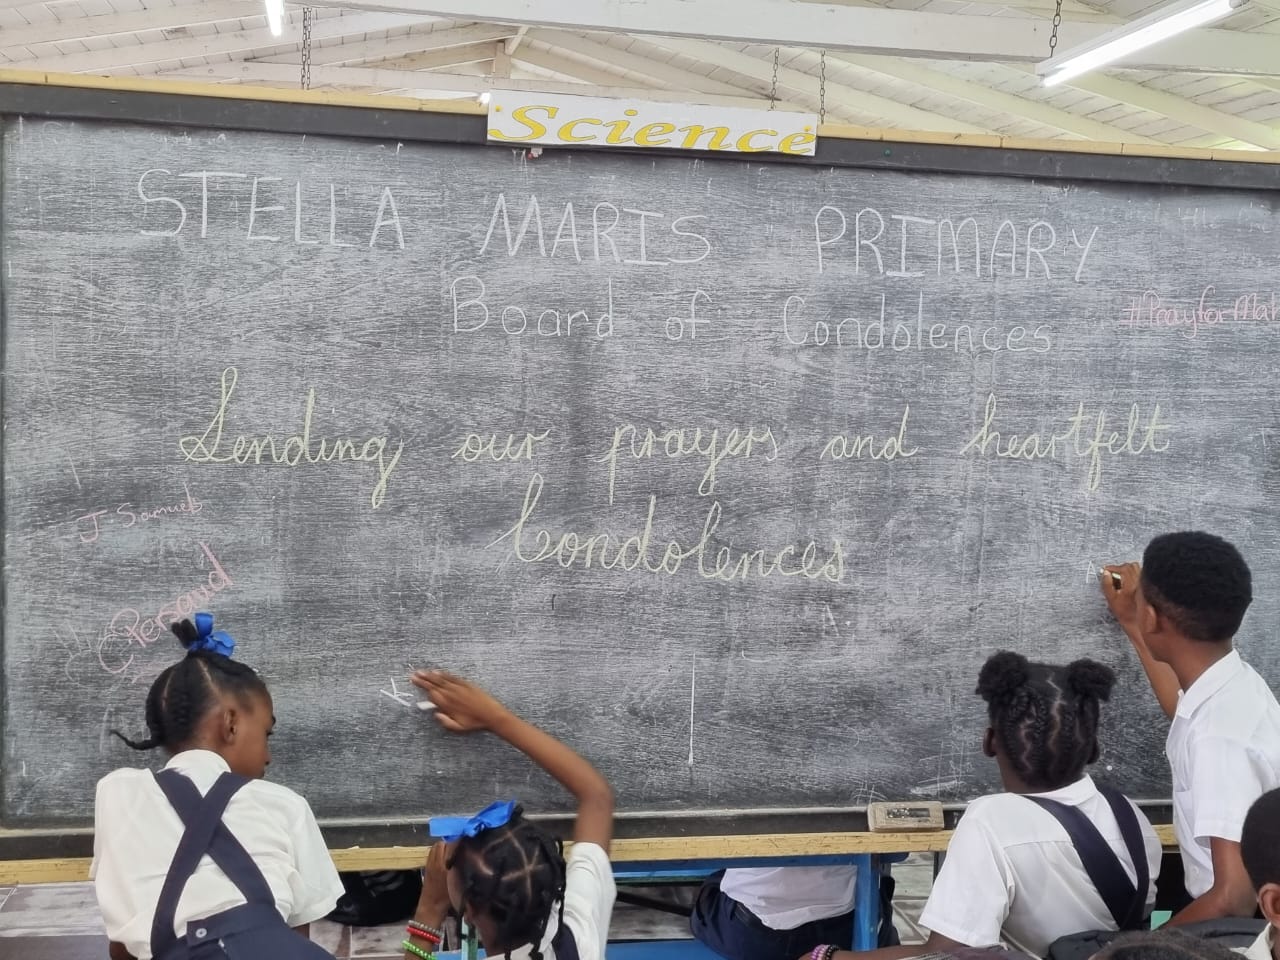 Science
STELLA MARIS PRIMARY
Board of Condolences
#PrayforMah
Sending our prayers and heartfelt
Condolences
J. Samuels
C Persaud
K
A